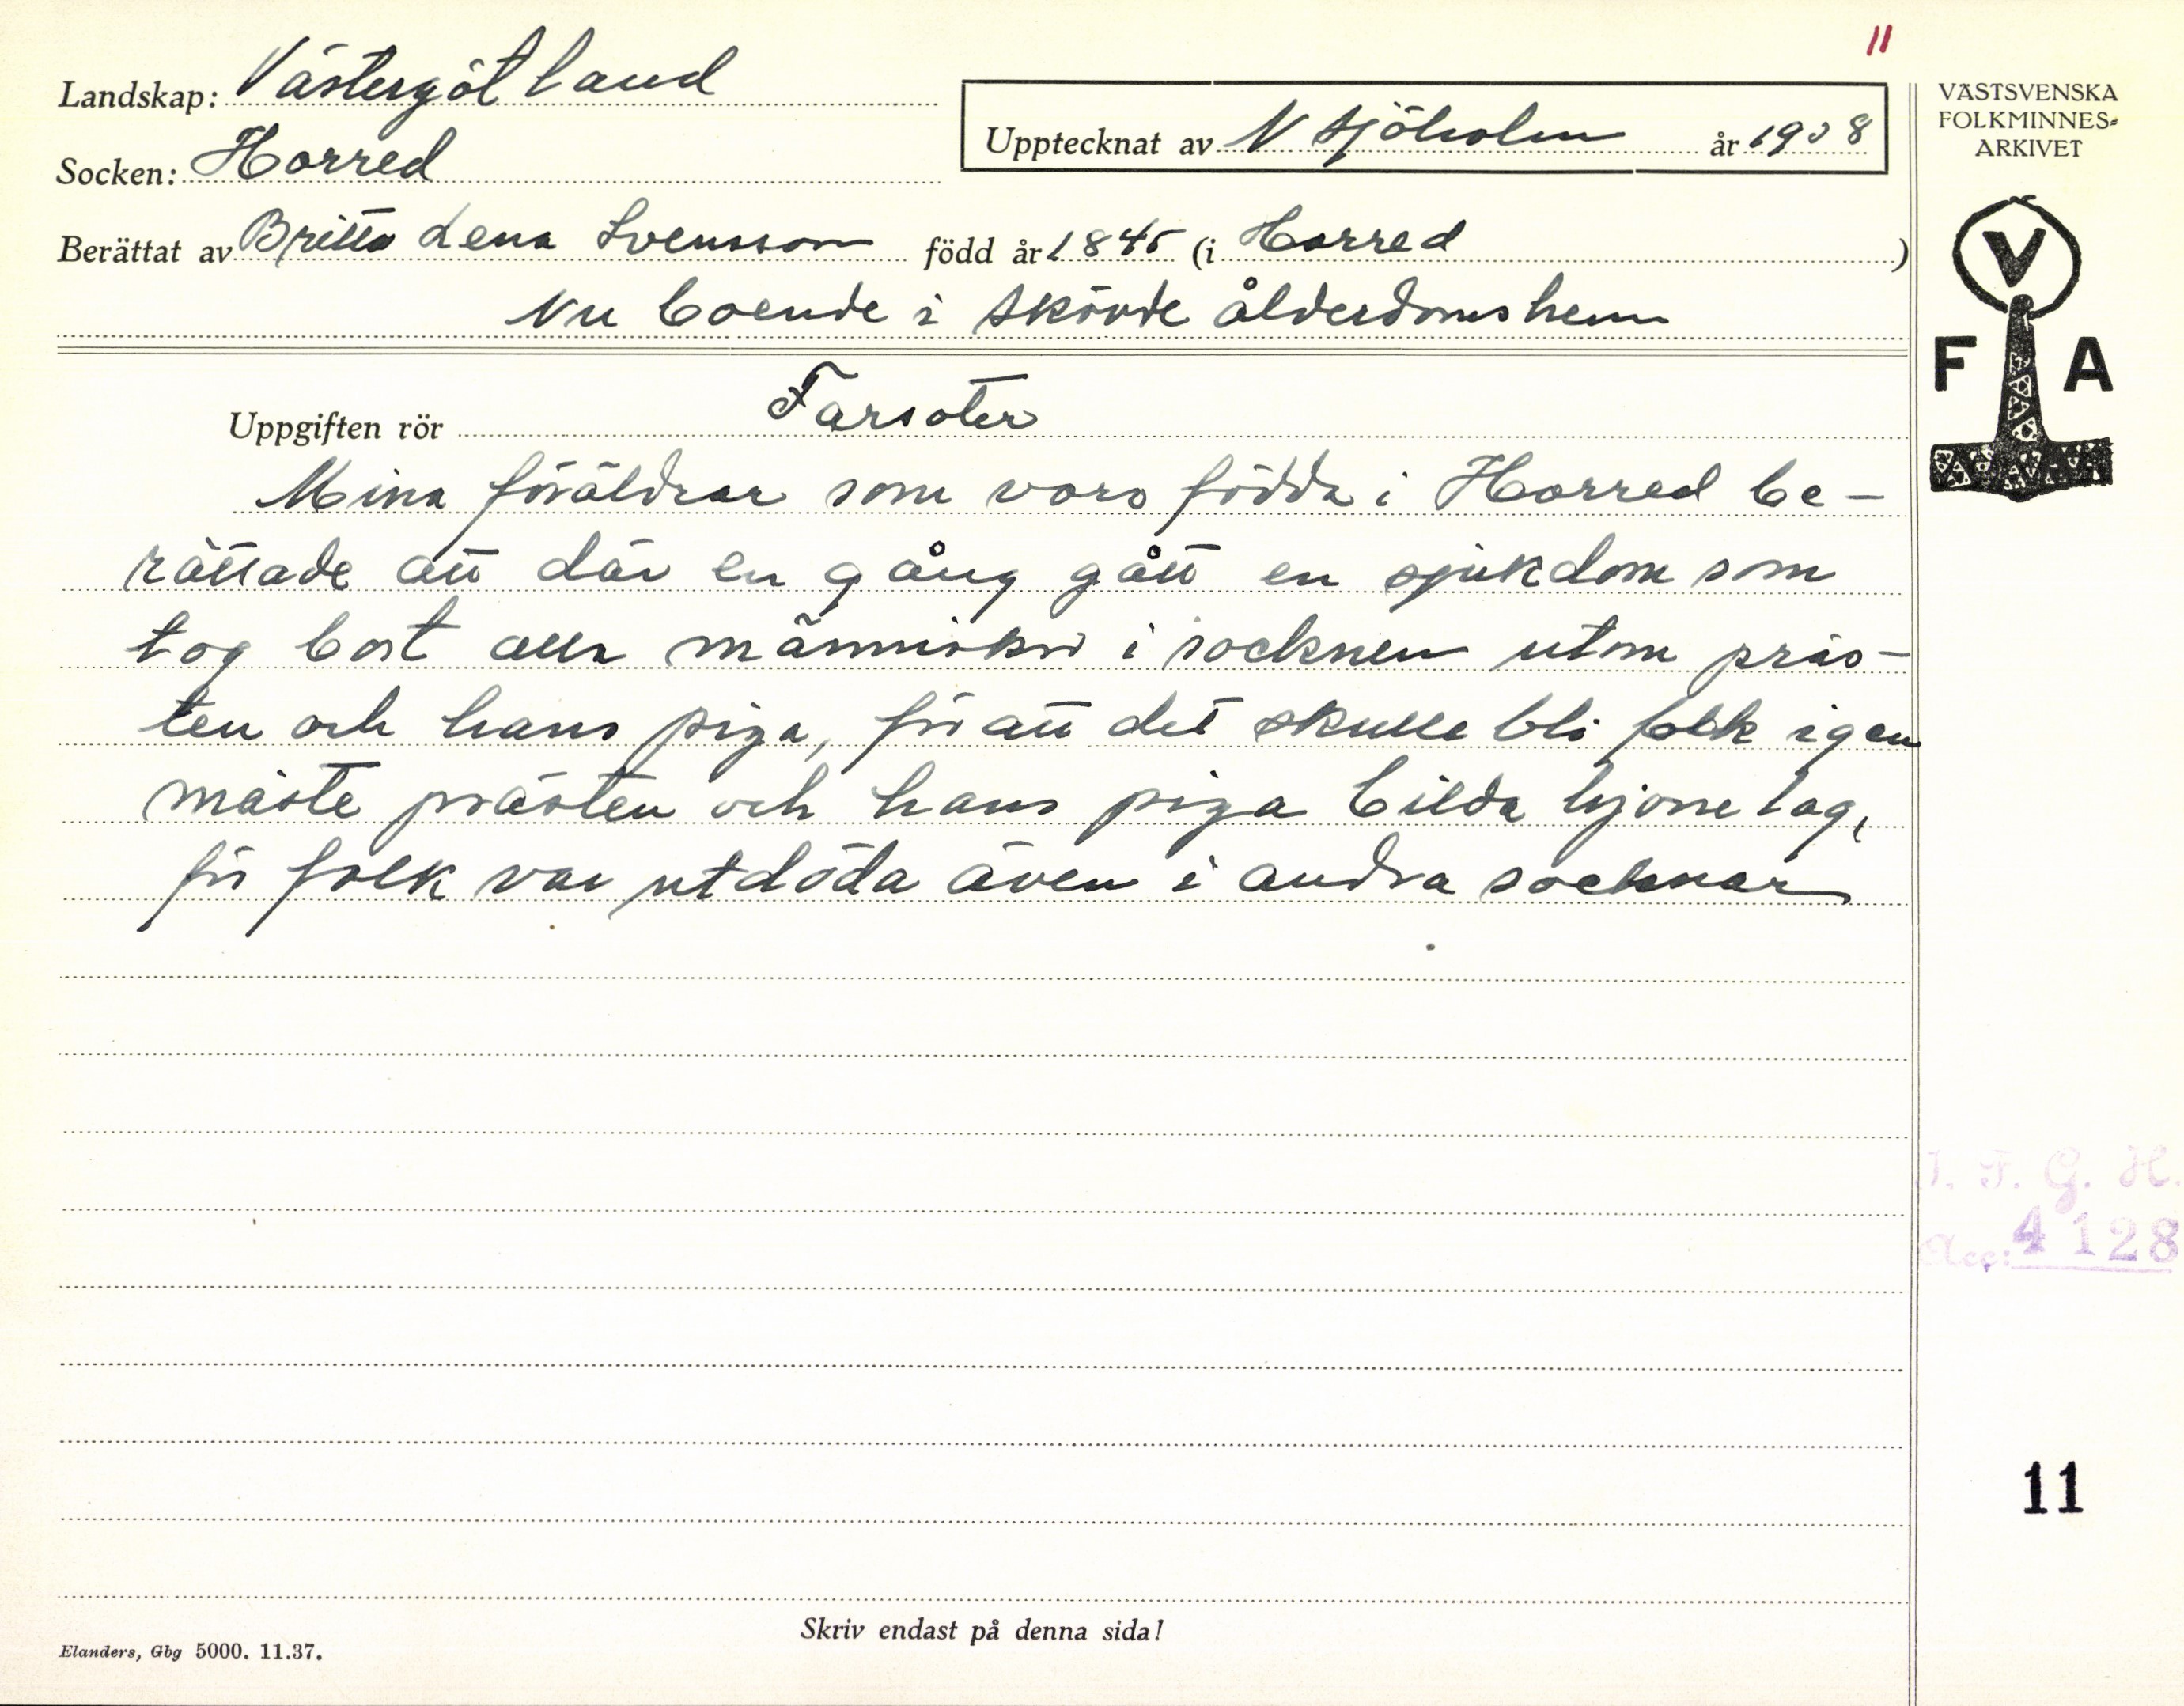 11
Landskap: Västergötland
Upptecknat av N Sjöholm år 1938
Socken: Horred
Berättat av Britta Lena Svensson född år 1845 (i Horred)
Nu boende i Skövde ålderdomshem
VÄSTSVENSKA
FOLKMINNES-
ARKIVET
V
F A
Uppgiften rör Farsoter
Mina föräldrar som voro födda i Horred be-
rättade att där en gång gått en sjukdom som
tog bort alla människor i socknen utom präs-
ten och hans piga, för att det skulle bli folk igen
måste prästen och hans piga bilda hjonelag,
för folk var utdöda även i andra socknar
I. F. G. H.
Acc: 4128
11
Skriv endast på denna sida!
Elanders, Gbg 5000. 11.37.